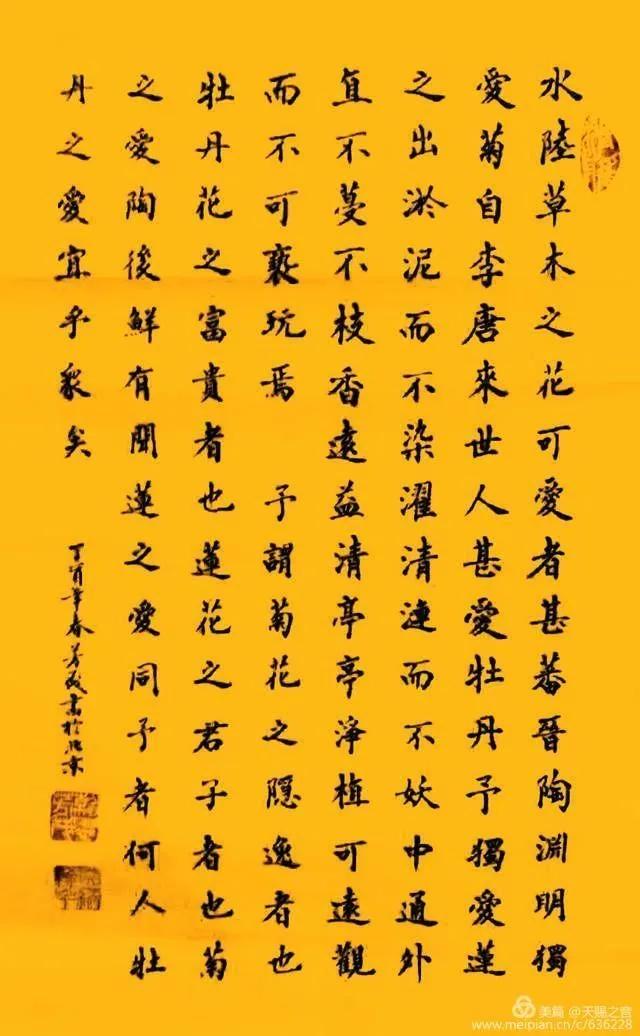 水陸草木之花可愛者甚蕃晉陶淵明獨
愛菊自李唐來世人甚愛牡丹予獨愛蓮
之出淤泥而不染濯清漣而不妖中通外
直不蔓不枝香遠益清亭亭淨植可遠觀
而不可褻玩焉 予謂菊花之隱逸者也
牡丹花之富貴者也蓮花之君子者也菊
之愛陶後鮮有聞蓮之愛同予者何人牡
丹之愛宜乎眾矣
丁酉年春芳書於北京
美篇 @天赐之宫
www.meipian.cn/c/636228